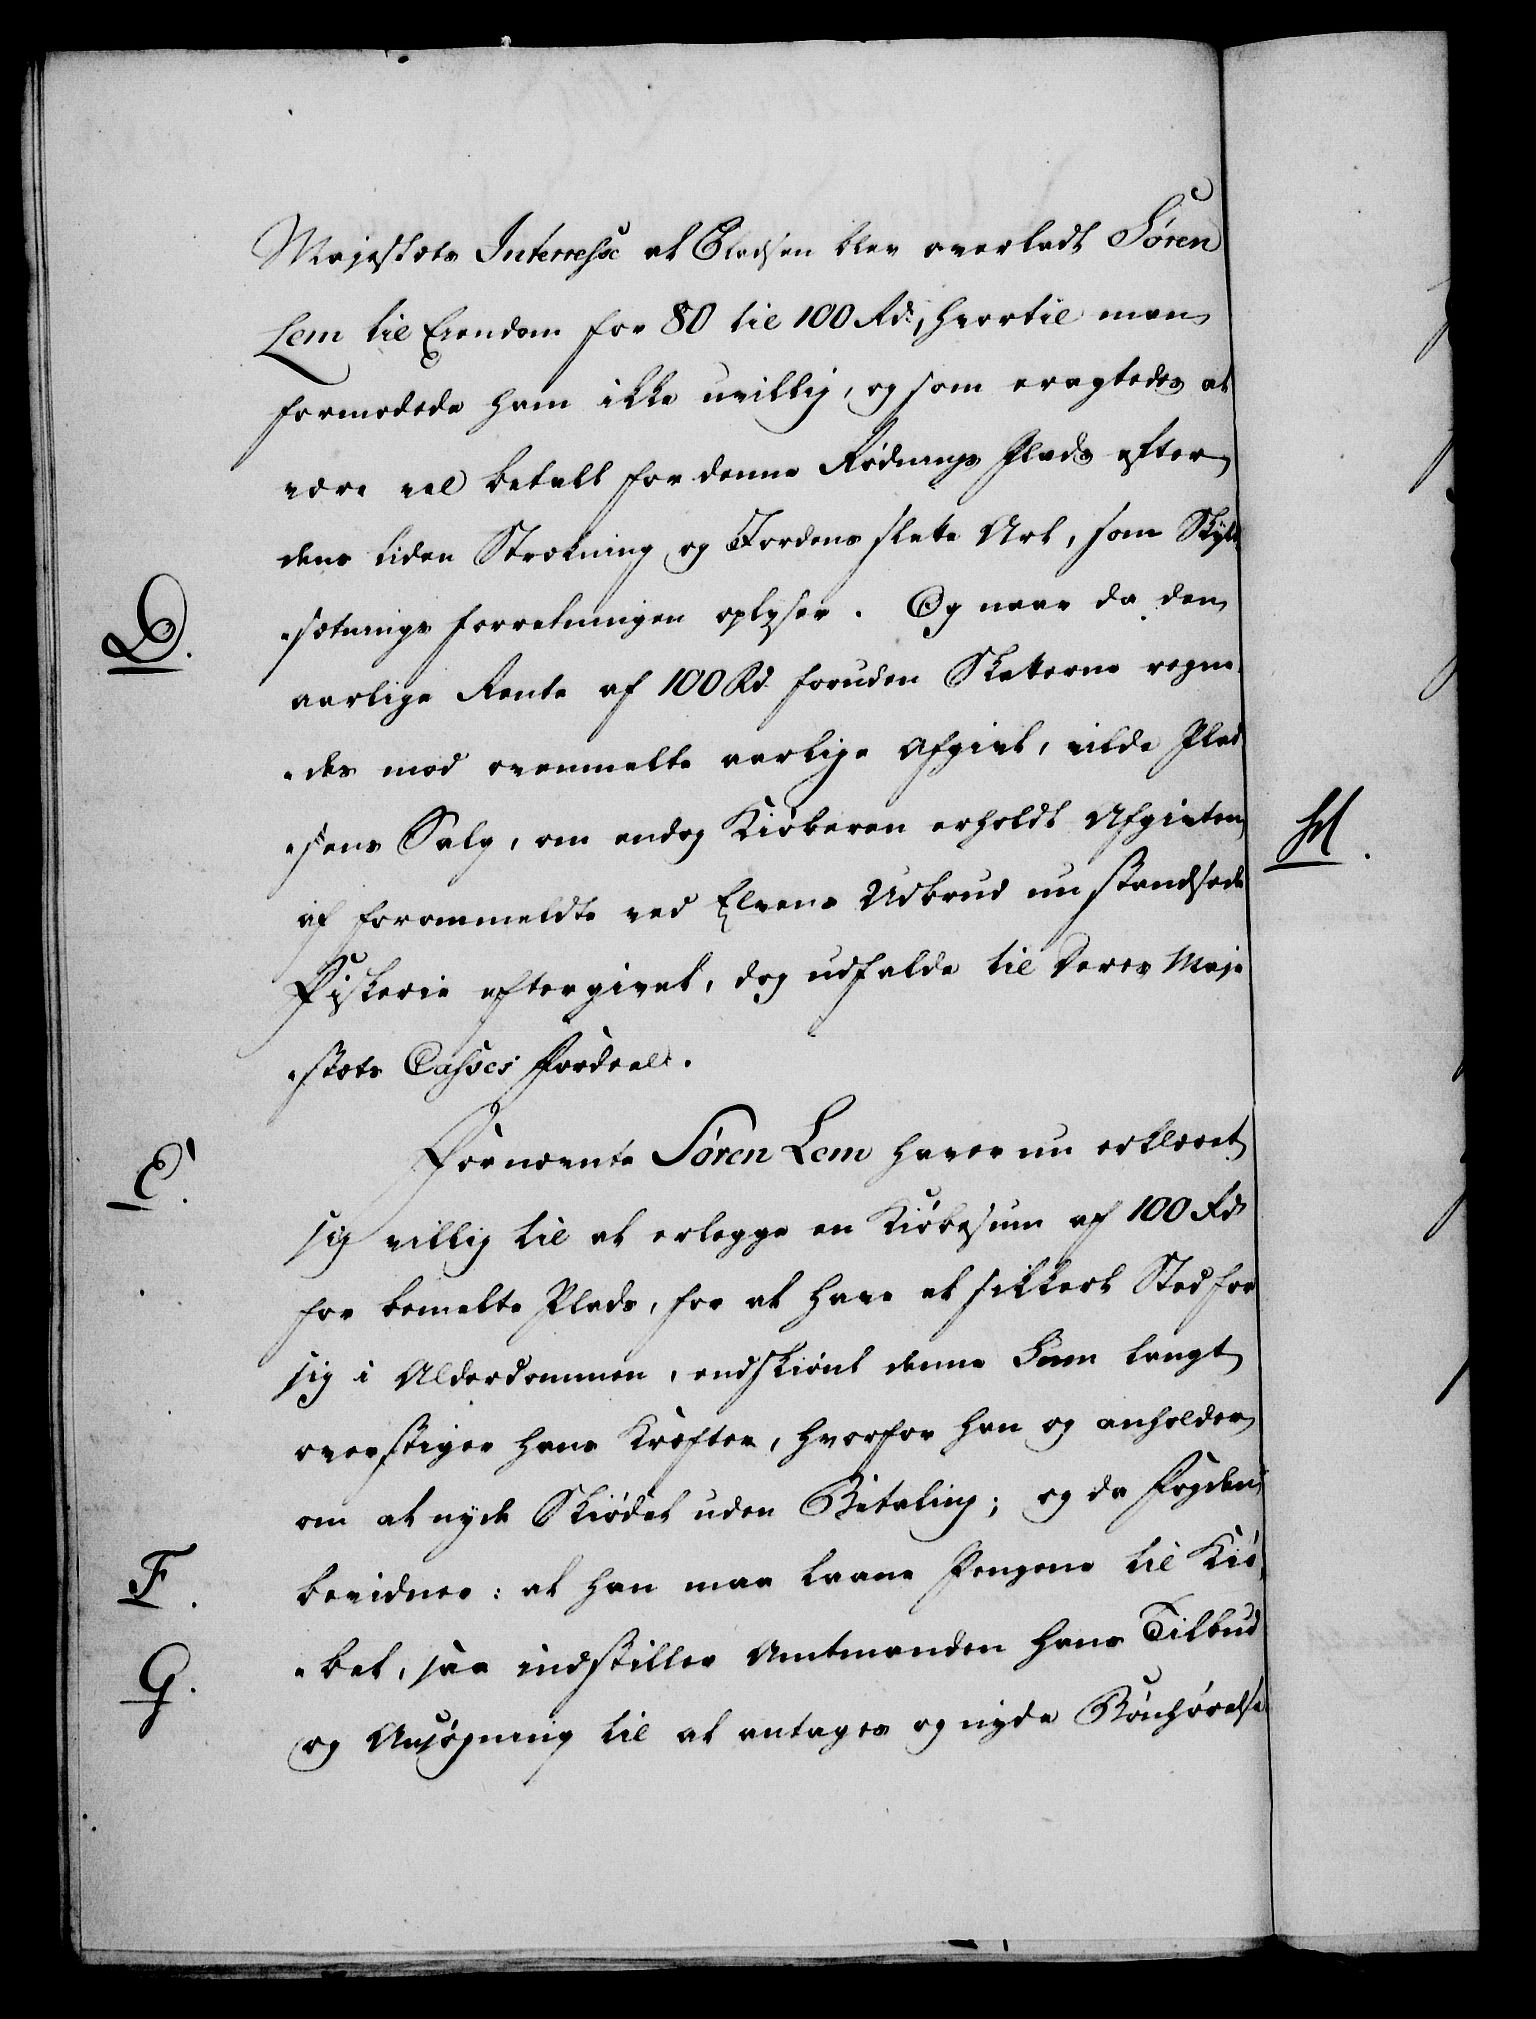 Majestæts Interresse at Pladsen blev overladt Søren
Lem til Eiendom for 80 til 100 Rd, hvortil man
formodede ham ikke uvillig, og som eragtedes at
være vel betalt for denne Rødnings Plads efter
dens liden Strækning og Jordens slette Art, som Skyld
D.
"sætnings forretningen oplyser. Og naar da den
aarlige Rente af 100 Rd foruden Skatterne regne
"des mod ovenmelte aarlige Afgivt, vilde Plad
"sens Salg, om endog Kiøberen erholdt Afgivten
H.
af forommeldte ved Elvens Udbrud nu standsede
Fiskerie eftergivet, dog udfalde til Deres Maje
"stæts Casses Fordeel.
E.
Fornævnte Søren Lem haver nu erklæret
sig villig til at erlegge en Kiøbesum af 100 Rd
for bemelte Plads, for at have et sikkert Sted for
sig i Alderdommen, endskiønt denne Sum langt
overstiger hans Kræfter, hvorfor han og anholder
om at nyde Skiødet uden Betaling; og da Fogden
F.
bevidner: at han maa laane Pengene til Kiø
G.
"bet, saa indstiller Amtmanden hans Tilbud
og Ansøgning til at antages og nyde Bønhørelse